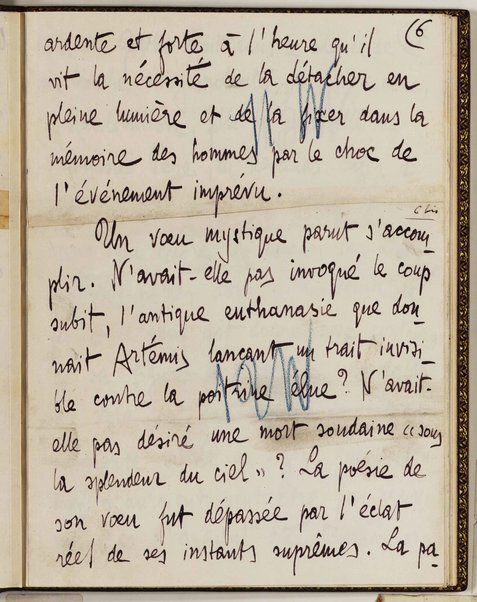 (6
ardente et forte à l'heure qu'il
vit la nécessité de la détacher en
pleine lumière et de la fixer dans la
mémoire des hommes par le choc de
l'événement imprévu.
6 bis
Un vœu mystique parut s'accom-
plir. N'avait-elle pas invoqué le coup
subit, l'antique euthanasie que don-
nait Artémis lançant un trait invisi-
ble contre la poitrine élue? N'avait-
elle pas désiré une mort soudaine «sous
la splendeur du ciel»? La poésie de
son vœu fut dépassée par l'éclat
réel de ses instants suprêmes. La pa-